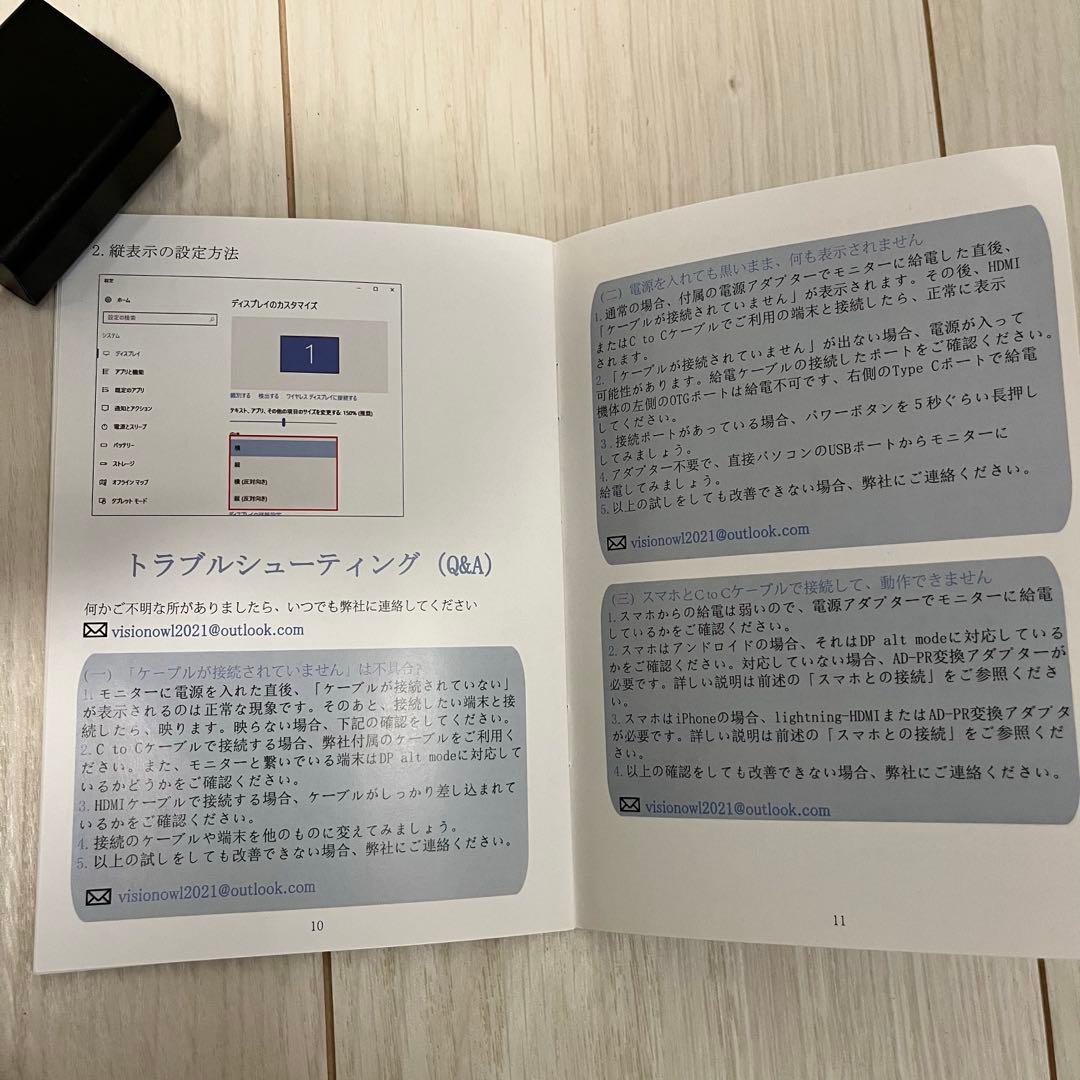 2. 縦表示の設定方法
設定
ホーム
設定の検索
システム
ディスプレイ
アプリと機能
既定のアプリ
通知とアクション
電源とスリープ
バッテリー
ストレージ
オフライン マップ
タブレット モード
ディスプレイのカスタマイズ
1
識別する 検出する ワイヤレス ディスプレイに接続する
テキスト、アプリ、その他の項目のサイズを変更する: 150% (推奨)
横
縦
横 (反対向き)
縦 (反対向き)
トラブルシューティング (Q&A)
何かご不明な所がありましたら、いつでも弊社に連絡してください
visionowl2021@outlook.com
(一) 「ケーブルが接続されていません」は不具合?
1. モニターに電源を入れた直後、「ケーブルが接続されていない」
が表示されるのは正常な現象です。そのあと、接続したい端末と接
続したら、映ります。映らない場合、下記の確認をしてください。
2. C to Cケーブルで接続する場合、弊社付属のケーブルをご利用く
ださい。また、モニターと繋いでいる端末はDP alt modeに対応して
いるかどうかをご確認ください。
3. HDMIケーブルで接続する場合、ケーブルがしっかり差し込まれて
いるかをご確認ください。
4. 接続のケーブルや端末を他のものに変えてみましょう。
5. 以上の試しをしても改善できない場合、弊社にご連絡ください。
visionowl2021@outlook.com
10
(二) 電源を入れても黒いまま、何も表示されません
1. 通常の場合、付属の電源アダプターでモニターに給電した直後、
「ケーブルが接続されていません」が表示されます。その後、HDMI
またはC to Cケーブルでご利用の端末と接続したら、正常に表示
されます。
2. 「ケーブルが接続されていません」が出ない場合、電源が入って
可能性があります。給電ケーブルの接続したポートをご確認ください。
機体の左側のOTGポートは給電不可です、右側のType Cポートで給電
してください。
3. 接続ポートがあっている場合、パワーボタンを5秒ぐらい長押し
してみましょう。
4. アダプター不要で、直接パソコンのUSBポートからモニターに
給電してみましょう。
5. 以上の試しをしても改善できない場合、弊社にご連絡ください。
visionowl2021@outlook.com
(三) スマホとC to Cケーブルで接続して、動作できません
1. スマホからの給電は弱いので、電源アダプターでモニターに給電
しているかをご確認ください。
2. スマホはアンドロイドの場合、それはDP alt modeに対応している
かをご確認ください。対応していない場合、AD-PR変換アダプターが
必要です。詳しい説明は前述の「スマホとの接続」をご参照くださ
い。
3. スマホはiPhoneの場合、lightning-HDMIまたはAD-PR変換アダプタ
が必要です。詳しい説明は前述の「スマホとの接続」をご参照くださ
い。
4. 以上の確認をしても改善できない場合、弊社にご連絡ください。
visionowl2021@outlook.com
11